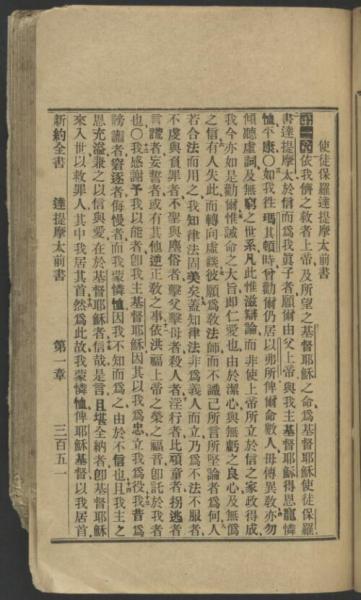 使徒保羅達提摩太前書
第一章 依我儕之救者上帝及所望之基督耶穌之命爲基督耶穌使徒保羅
書達提摩太於信而爲我眞子者願爾由父上帝與我主基督耶穌得恩寵憐
恤平康○如我往瑪其頓時曾勸爾仍居以弗所俾爾命數人毋傳異敎亦勿
傾聽虛詞及無窮之世系凡此惟滋辯論而非使上帝所立於信之家政得成
我今亦如是勸爾惟誡命之大旨即仁愛也由於潔心與無虧之良心及無僞
之信有人失此而轉向虛談彼願爲敎法師而不識己所言所堅論者爲何人
若合法而用之我知律法固美矣蓋知律法非爲義人而立乃爲不法不服者
不虔與負罪者不聖與塵俗者擊父擊母者殺人者淫行者比頑童者拐逃者
言謊者妄誓者或有其他逆正敎之事依洪福上帝之榮之福音卽託於我者
也○我感謝予我以能者卽我主基督耶穌因其以我爲忠立我爲役我昔爲
謗讟者窘逐者侮慢者而我蒙憐恤因我不知而爲之由於不信也且我主之
恩充溢兼之以信與愛在於基督耶穌者信哉是言且堪全納者卽基督耶穌
來入世以救罪人其中我居其首然爲此故我蒙憐恤俾耶穌基督以我居首
新約全書 達提摩太前書 第一章 三百五一